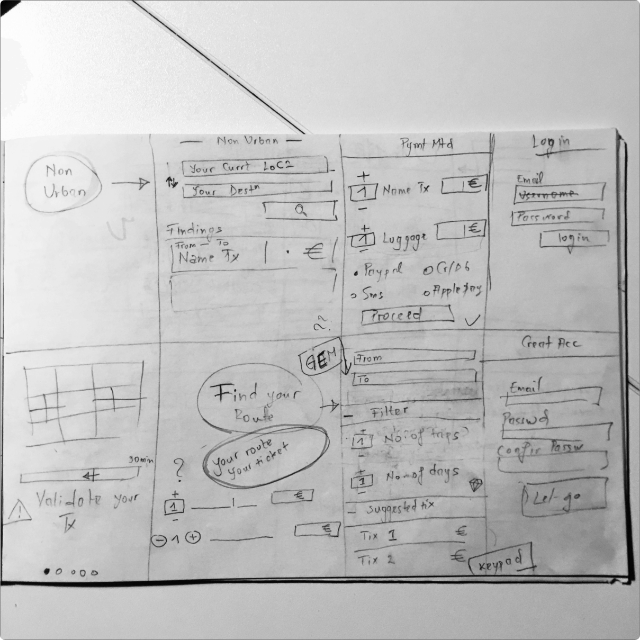 Non
Urban
Non Urban
Your Curnt Loc2
Your Destn
Findings
From - To
Name Tx
€
Pymt Mtd
+
1 Name Tx €
-
+
1 Luggage €
-
Paypal
Cr/Db
Sms
Apple pay
Proceed
Login
Email
Username
Password
login
30min
Validate your
Tx
Find your
Route
your route
your ticket
?
+
1 €
-
- 1 + €
GEM
From
To
Filter
1 No: of trips?
1 No: of days
Suggested tix
Tix 1 €
Tix 2 €
keypad
Creat Acc
Email
Passwd
Confir Passw
Let-go